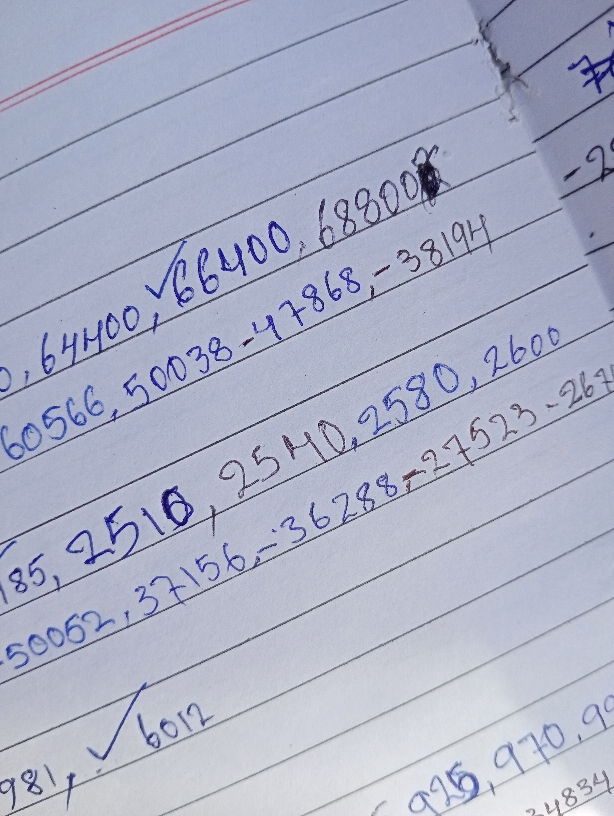 0, 64400, ✓66400, 68800
60566, 50038-47868,-38194
185, 2510, 2540, 2580, 2600
-50052, 37156,-36288,-27523-267
981, ✓6012
925, 970, 99
34834
-2